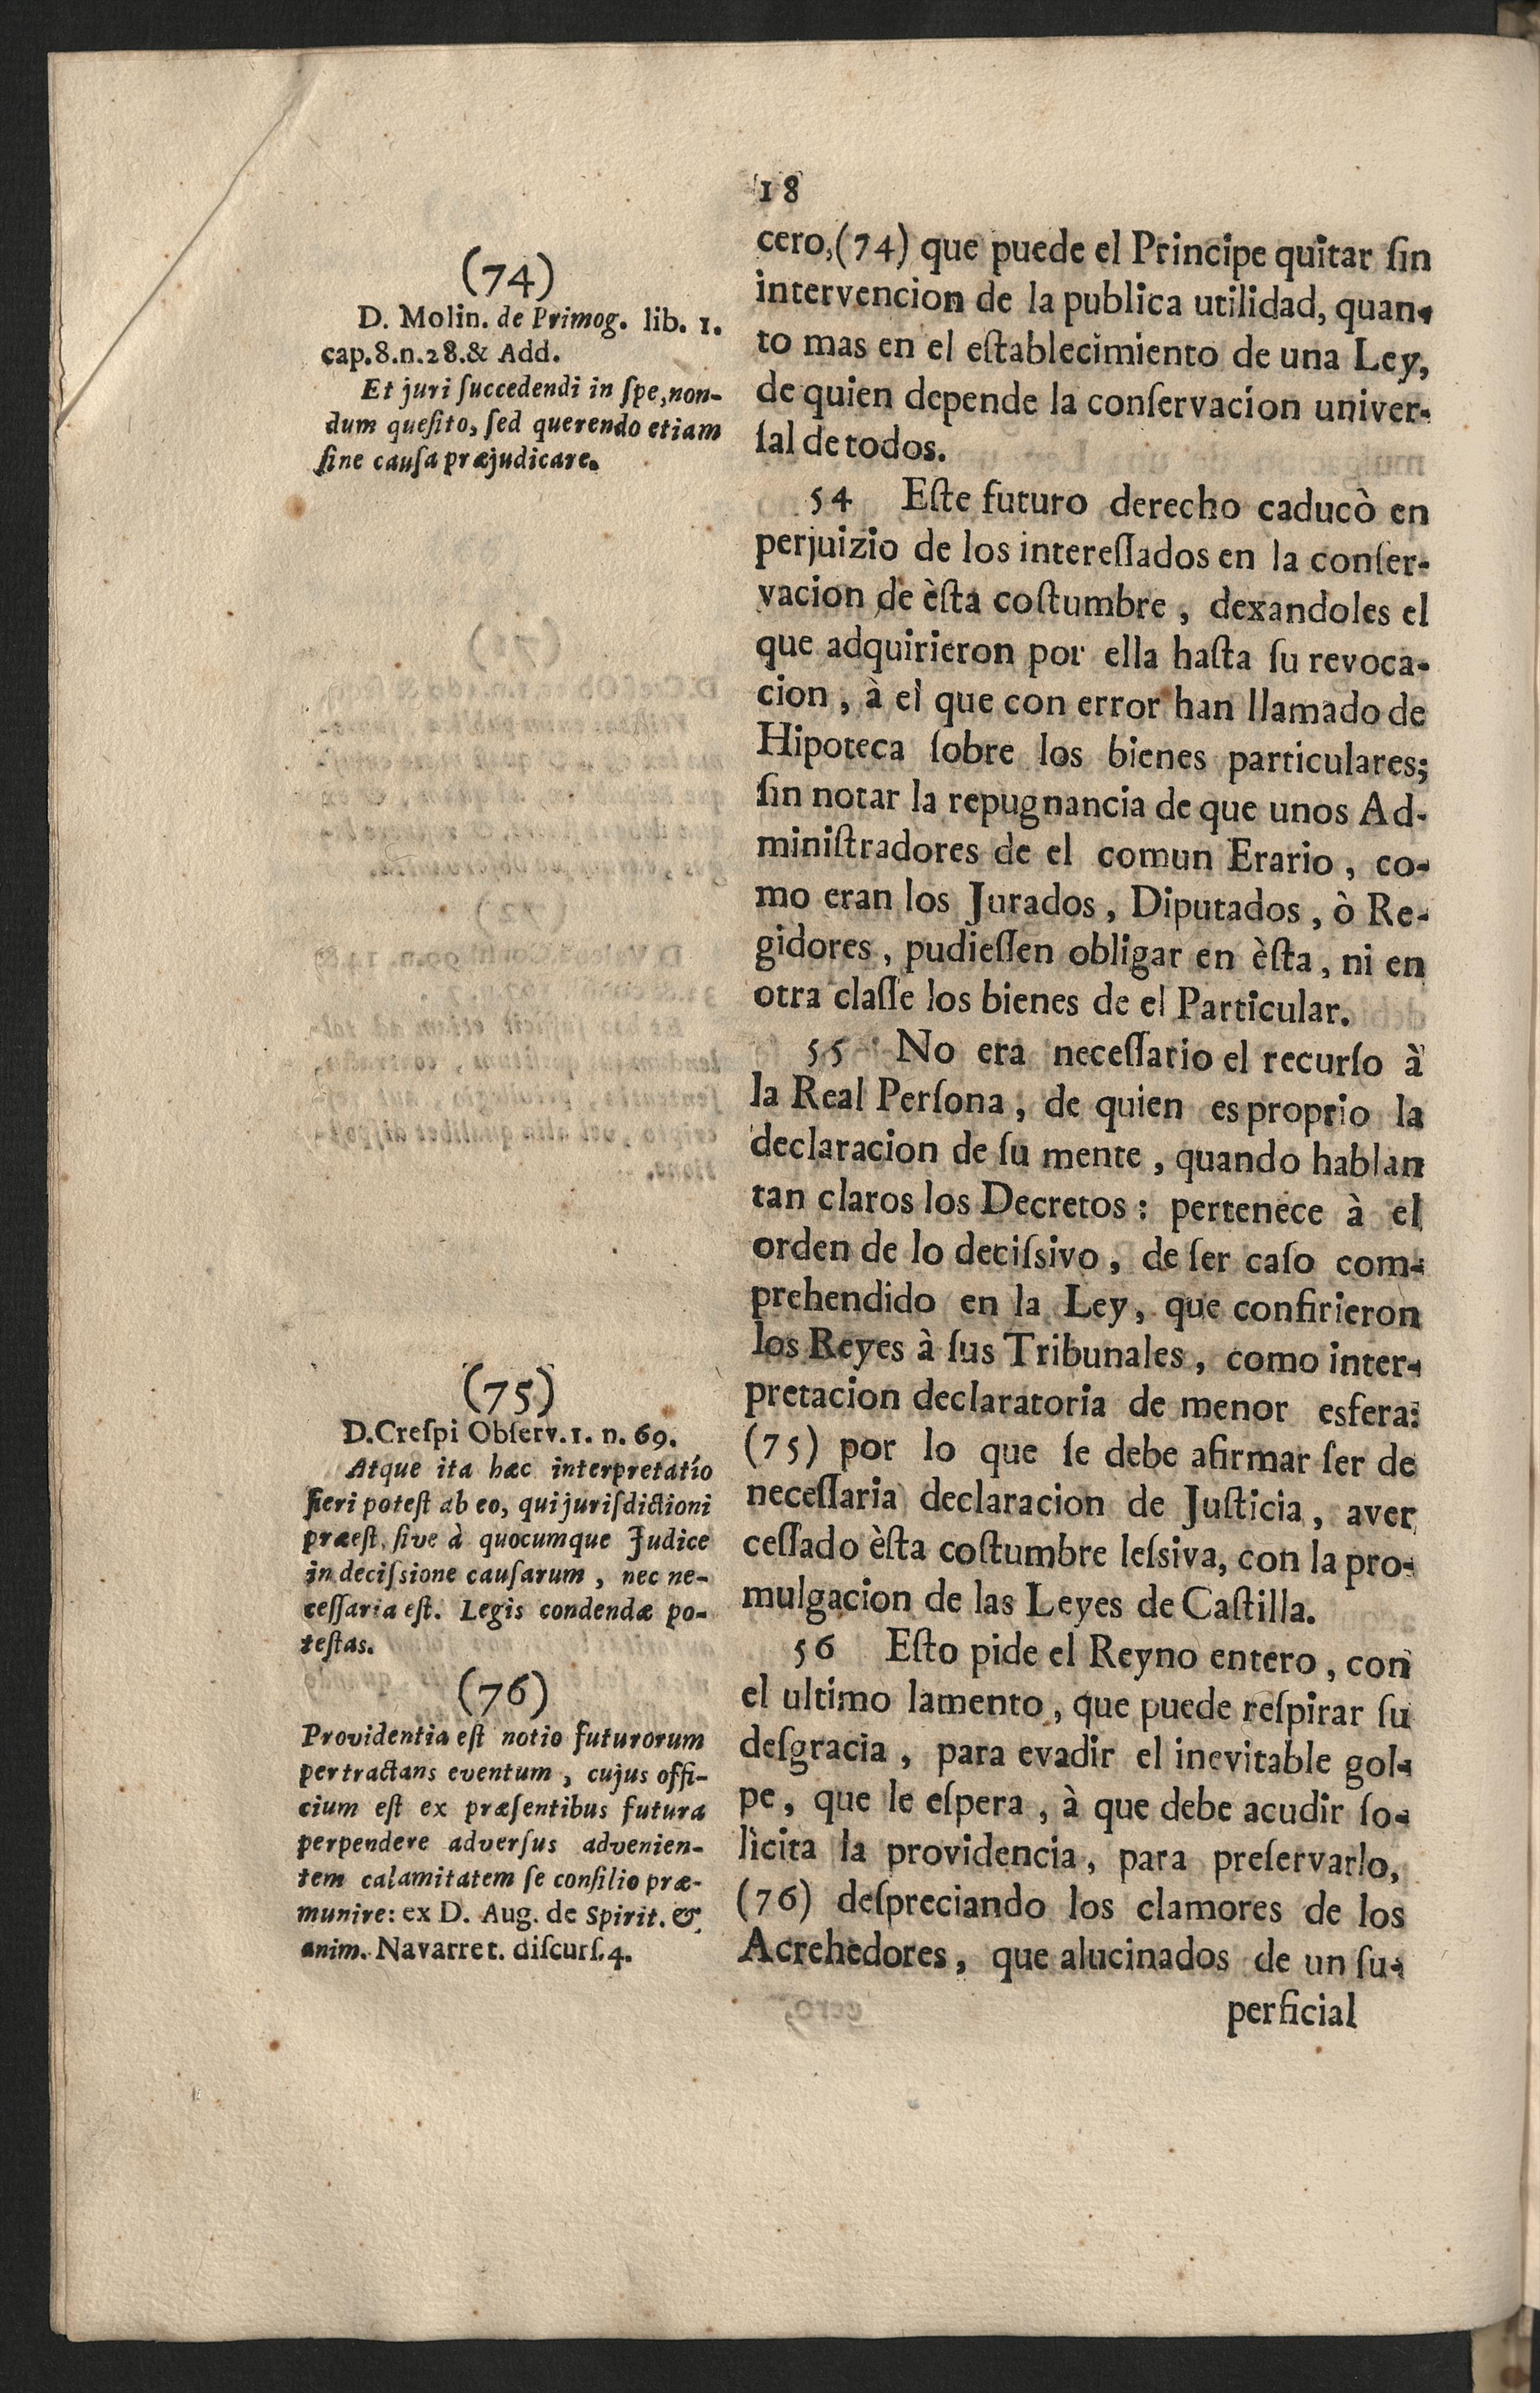 18
(74)
D. Molin. de Primog. lib. 1.
cap.8.n.28.& Add.
Et juri ſuccedendi in ſpe,non-
dum queſito, ſed querendo etiam
ſine cauſa præjudicare.
(75)
D.Creſpi Obſerv.1. n. 69.
Atque ita hæc interpretatio
fieri poteſt ab eo, qui juriſdictioni
præeſt, ſive à quocumque Judice
in deciſsione cauſarum, nec ne-
ceſſaria eſt. Legis condendæ po-
teſtas.
(76)
Providentia eſt notio futurorum
pertractans eventum, cujus offi-
cium eſt ex præſentibus futura
perpendere adverſus advenien-
tem calamitatem ſe conſilio præ-
munire: ex D. Aug. de Spirit. &
anim. Navarret. diſcurſ.4.
cero,(74) que puede el Principe quitar ſin
intervencion de la publica utilidad, quan-
to mas en el eſtablecimiento de una Ley,
de quien depende la conſervacion univer-
ſal de todos.
54 Eſte futuro derecho caducò en
perjuizio de los intereſſados en la conſer-
vacion de èſta coſtumbre, dexandoles el
que adquirieron por ella haſta ſu revoca-
cion, à el que con error han llamado de
Hipoteca ſobre los bienes particulares;
ſin notar la repugnancia de que unos Ad-
miniſtradores de el comun Erario, co-
mo eran los Jurados, Diputados, ò Re-
gidores, pudieſſen obligar en èſta, ni en
otra claſſe los bienes de el Particular.
55 No era neceſſario el recurſo à
la Real Perſona, de quien es proprio la
declaracion de ſu mente, quando hablan
tan claros los Decretos: pertenece à el
orden de lo deciſsivo, de ſer caſo com-
prehendido en la Ley, que confirieron
los Reyes à ſus Tribunales, como inter-
pretacion declaratoria de menor esfera:
(75) por lo que ſe debe afirmar ſer de
neceſſaria declaracion de Juſticia, aver
ceſſado èſta coſtumbre leſsiva, con la pro-
mulgacion de las Leyes de Caſtilla.
56 Eſto pide el Reyno entero, con
el ultimo lamento, que puede reſpirar ſu
deſgracia, para evadir el inevitable gol-
pe, que le eſpera, à que debe acudir ſo-
licita la providencia, para preſervarlo,
(76) deſpreciando los clamores de los
Acrehedores, que alucinados de un ſu-
perficial